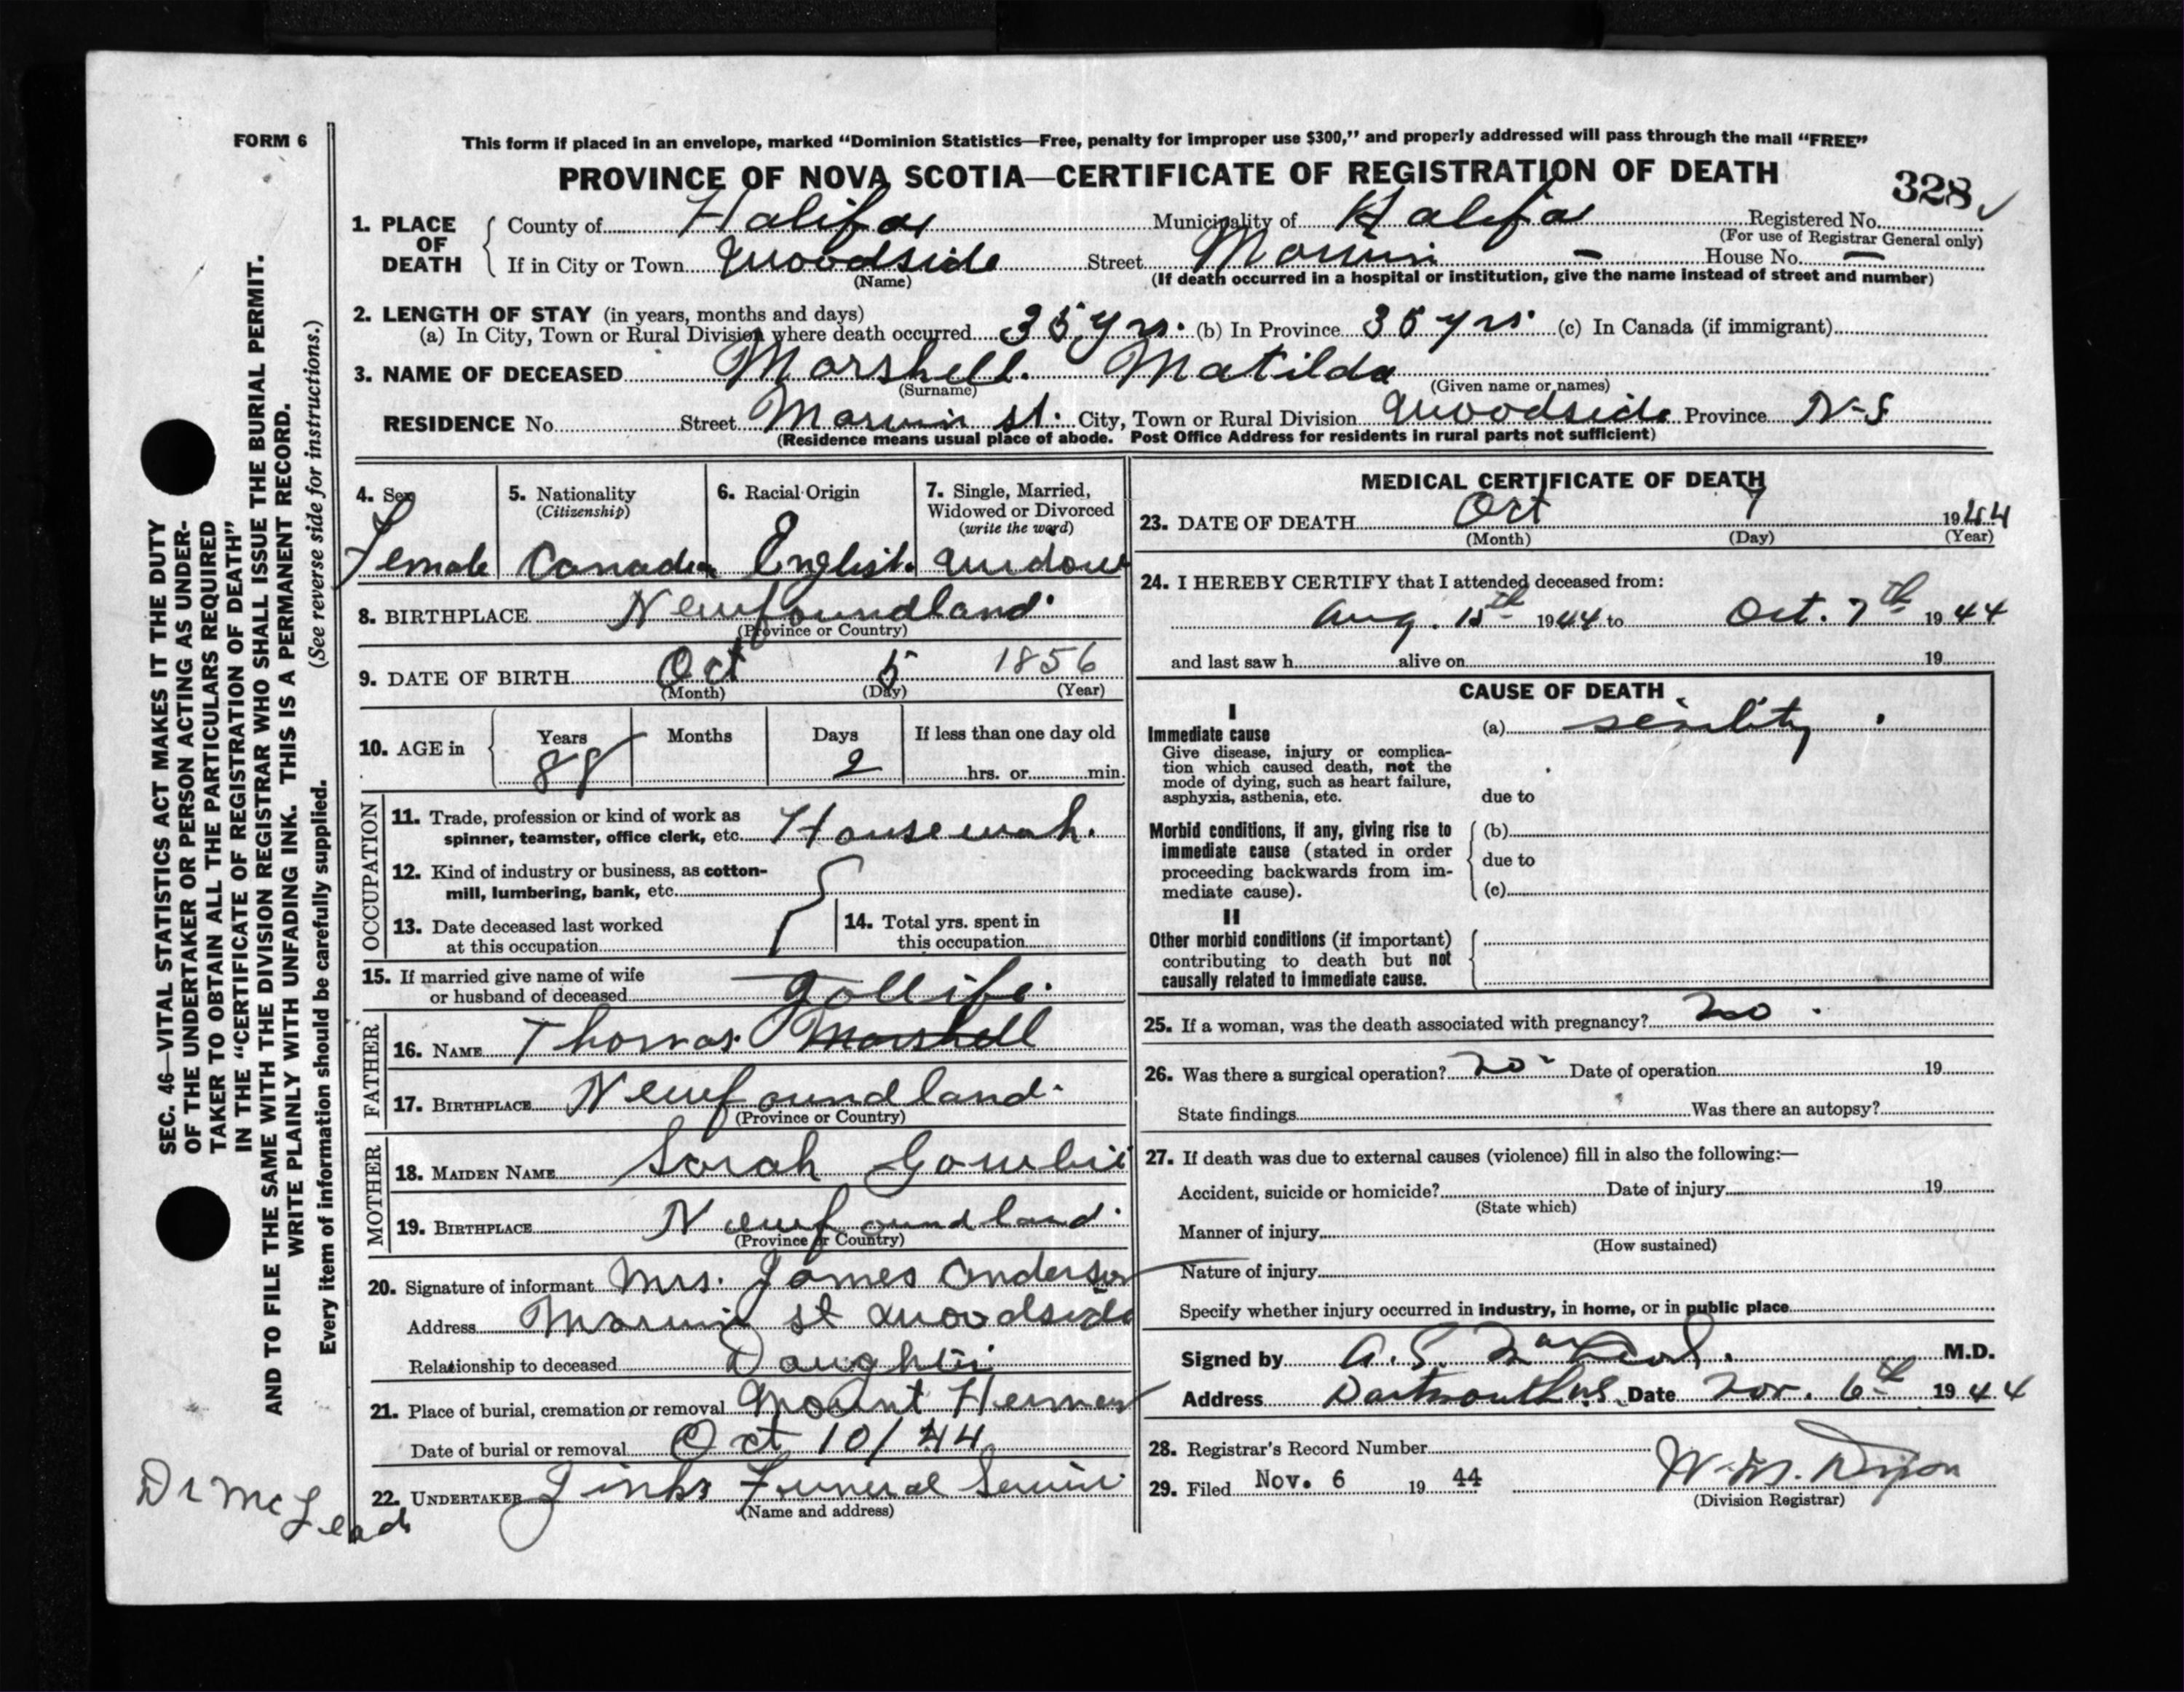 FORM 6
This form if placed in an envelope, marked “Dominion Statistics—Free, penalty for improper use $300,” and properly addressed will pass through the mail “FREE”
PROVINCE OF NOVA SCOTIA—CERTIFICATE OF REGISTRATION OF DEATH
328
1. PLACE OF DEATH
County of Halifax Municipality of Halifax Registered No.
(For use of Registrar General only)
If in City or Town Woodside Street House No. —
(Name) (If death occurred in a hospital or institution, give the name instead of street and number)
2. LENGTH OF STAY (in years, months and days)
(a) In City, Town or Rural Division where death occurred 35 yrs. (b) In Province 35 yrs. (c) In Canada (if immigrant)
3. NAME OF DECEASED Marshell. Matilda
(Surname) (Given name or names)
RESIDENCE No. Street St. City, Town or Rural Division Woodside Province N-S
(Residence means usual place of abode. Post Office Address for residents in rural parts not sufficient)
4. Sex 5. Nationality 6. Racial Origin 7. Single, Married,
(Citizenship) Widowed or Divorced
(write the word)
Female Canadian English. Widow
8. BIRTHPLACE Newfoundland.
(Province or Country)
9. DATE OF BIRTH Oct 5 1856
(Month) (Day) (Year)
10. AGE in Years Months Days If less than one day old
88 2 hrs. or min.
OCCUPATION
11. Trade, profession or kind of work as
spinner, teamster, office clerk, etc.
12. Kind of industry or business, as cotton-
mill, lumbering, bank, etc.
13. Date deceased last worked
at this occupation
14. Total yrs. spent in
this occupation
15. If married give name of wife
or husband of deceased
Jollife.
FATHER
16. NAME Thomas. Marshell
17. BIRTHPLACE Newfoundland.
(Province or Country)
MOTHER
18. MAIDEN NAME Sarah
19. BIRTHPLACE Newfoundland.
(Province or Country)
20. Signature of informant Mrs. James Anderson
Address St Woodside
Relationship to deceased Daughter
21. Place of burial, cremation or removal Mount Hermon
Date of burial or removal Oct 10/44
22. UNDERTAKER Funeral Service
(Name and address)
MEDICAL CERTIFICATE OF DEATH
23. DATE OF DEATH Oct 7 1944
(Month) (Day) (Year)
24. I HEREBY CERTIFY that I attended deceased from:
Aug. 15th 1944 to Oct. 7th 1944
and last saw h alive on 19
CAUSE OF DEATH
I
Immediate cause
Give disease, injury or complica-
tion which caused death, not the
mode of dying, such as heart failure,
asphyxia, asthenia, etc.
(a) senility.
due to
Morbid conditions, if any, giving rise to
immediate cause (stated in order
proceeding backwards from im-
mediate cause).
(b)
due to
(c)
II
Other morbid conditions (if important)
contributing to death but not
causally related to immediate cause.
25. If a woman, was the death associated with pregnancy? no.
26. Was there a surgical operation? no Date of operation 19
State findings Was there an autopsy?
27. If death was due to external causes (violence) fill in also the following:—
Accident, suicide or homicide? Date of injury 19
(State which)
Manner of injury
(How sustained)
Nature of injury
Specify whether injury occurred in industry, in home, or in public place
Signed by A. S. M.D.
Address Dartmouth N.S. Date Nov. 6th 1944
28. Registrar's Record Number
29. Filed Nov. 6 19 44
(Division Registrar)
SEC. 46—VITAL STATISTICS ACT MAKES IT THE DUTY
OF THE UNDERTAKER OR PERSON ACTING AS UNDER-
TAKER TO OBTAIN ALL THE PARTICULARS REQUIRED
IN THE “CERTIFICATE OF REGISTRATION OF DEATH”
AND TO FILE THE SAME WITH THE DIVISION REGISTRAR WHO SHALL ISSUE THE BURIAL PERMIT.
WRITE PLAINLY WITH UNFADING INK. THIS IS A PERMANENT RECORD.
Every item of information should be carefully supplied. (See reverse side for instructions.)
Dr McLeod